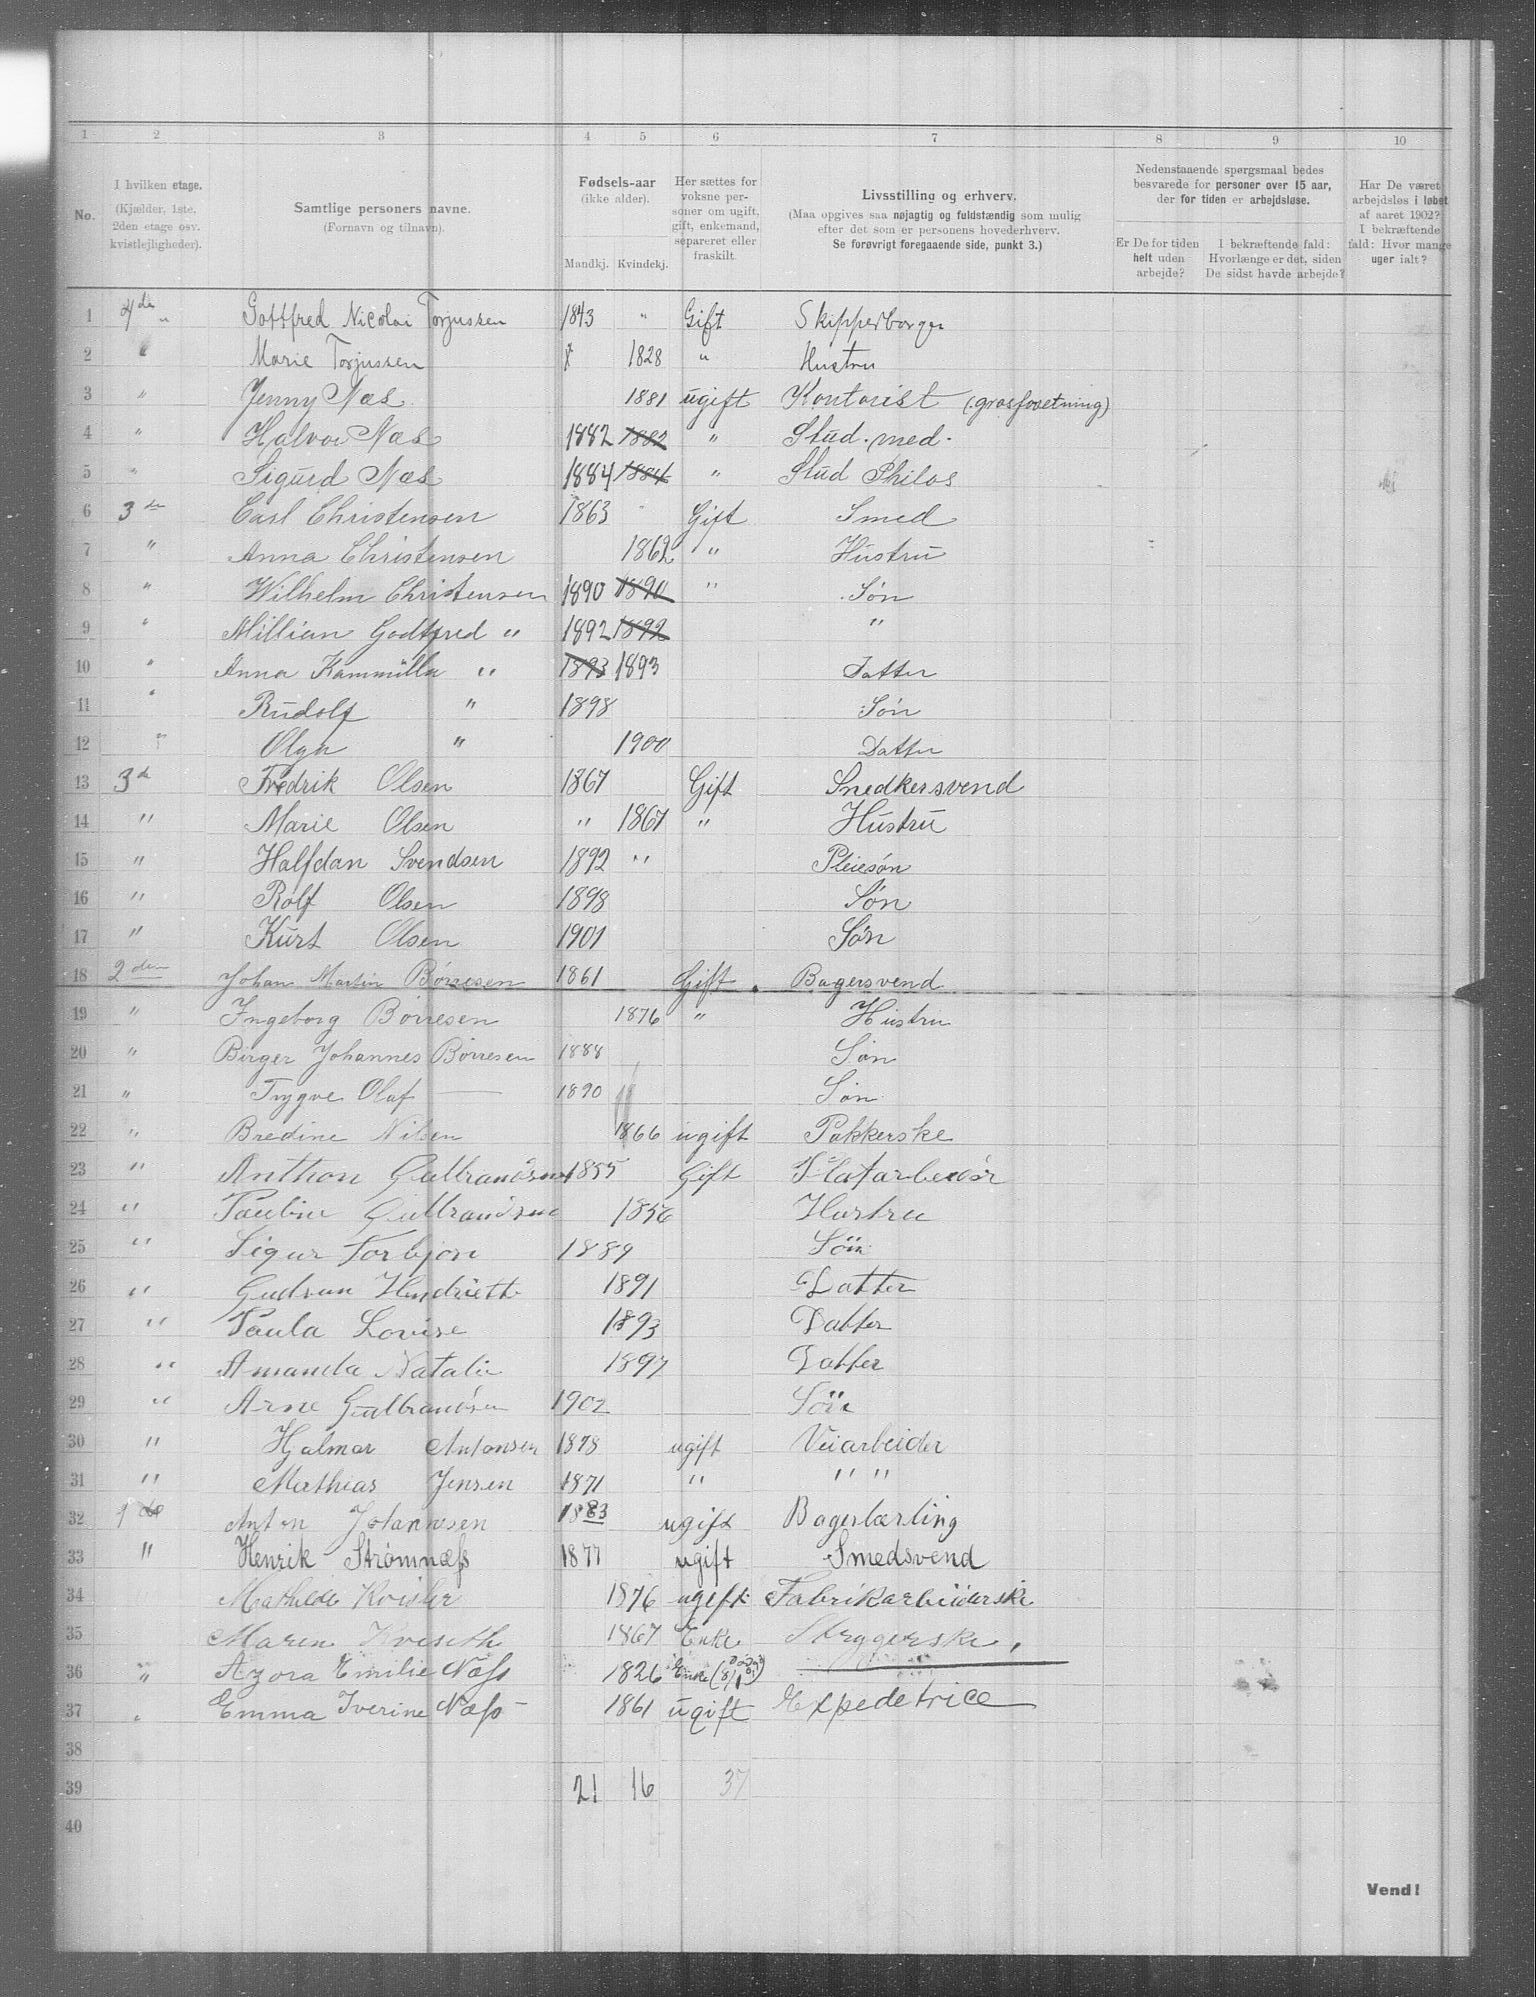 1 2 3 4 5 6 7 8 9 10
No. I hvilken etage. (Kjælder, 1ste, 2den etage osv. kvistlejligheder). Samtlige personers navne. (Fornavn og tilnavn). Fødsels-aar (ikke alder). Mandkj. Kvindekj. Her sættes for voksne personer om ugift, gift, enkemand, separeret eller fraskilt. Livsstilling og erhverv. (Maa opgives saa nøjagtig og fuldstændig som mulig efter det som er personens hovederhverv. Se forøvrigt foregaaende side, punkt 3.) Nedenstaaende spørgsmaal bedes besvarede for personer over 15 aar, der for tiden er arbejdsløse. Er De for tiden helt uden arbejde? I bekræftende fald: Hvorlænge er det, siden De sidst havde arbejde? Har De været arbejdsløs i løbet af aaret 1902? I bekræftende fald: Hvor mange uger ialt?
1 4de " Gottfred Nicolai Torjussen 1843 " Gift Skipperborger
2 " Marie Torjussen 1828 " Hustru
3 " Jenny Næs 1881 ugift Kontorist (grosforetning)
4 " Halvor Næs 1882 1882 " Stud. med.
5 " Sigurd Næs 1884 1884 " Stud Philos
6 3de Carl Christensen 1863 " Gift Smed
7 " Anna Christensen 1862 " Hustru
8 " Wilhelm Christensen 1890 1890 " Søn
9 " Millian Godtfred " 1892 1892 "
10 " Anna Kammilla " 1893 1893 Datter
11 " Rudolf " 1898 Søn
12 " Olga " 1900 Datter
13 3de Fredrik Olsen 1867 Gift Snedkersvend
14 " Marie Olsen " 1867 " Hustru
15 " Halfdan Svendsen 1892 " Pleiesøn
16 " Rolf Olsen 1898 Søn
17 " Kurt Olsen 1901 Søn
18 2den Johan Martin Børresen 1861 Gift. Bagersvend
19 " Ingeborg Børresen 1876 " Hustru
20 " Birger Johannes Børresen 1888 Søn
21 " Trygve Olaf — 1890 Søn
22 " Bredine Nilsen 1866 ugift Pakkerske
23 " Anthon Gulbrandsen 1855 Gift
24 " Pauline Gulbrandsen 1856 Hustru
25 " Sigur Torbjørn 1889 Søn
26 " Gudrun Hendriette 1891 Datter
27 " Paula Lovise 1893 Datter
28 " Amanda Natalie 1897 Datter
29 " Arne Gulbrandsen 1902 Søn
30 " Hjalmar Antonsen 1878 ugift Veiarbeider
31 " Mathias Jensen 1871 " " "
32 1ste Anton Johannesen 1883 ugift Bagerlærling
33 " Henrik Strømnæss 1877 ugift Smedsvend
34 Mathilde 1876 ugift Fabrikarbeiderske
35 Maren Kveseth 1867 Enke Strygerske,
36 " Azora Emilie Næss 1826 Enke
37 " Emma Iverine Næss 1861 ugift Expedetrice
38
39 21 16 37
40
Vend!